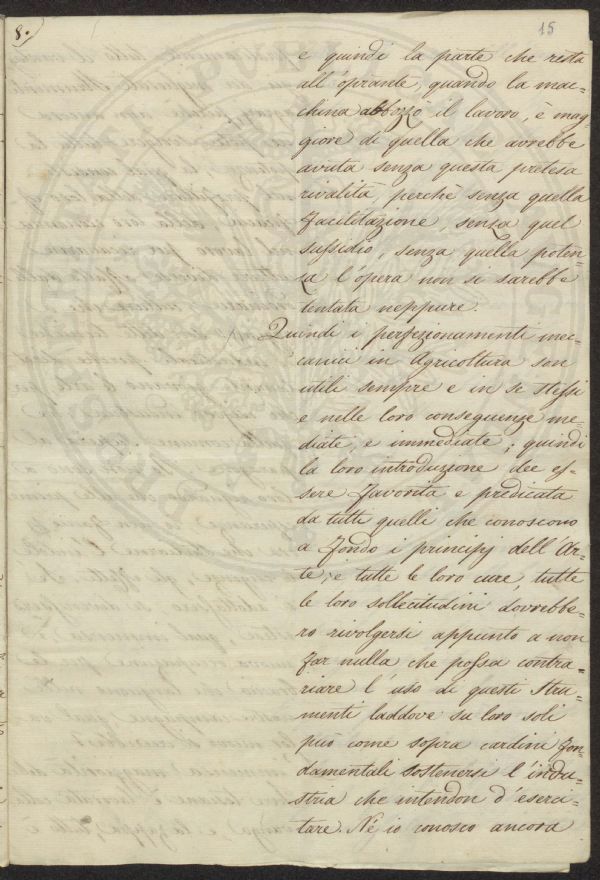 8.
15
e quindi la parte che resta
all'oprante, quando la mac-
china abbozzò il lavoro, è mag-
giore di quella che avrebbe
avuta senza questa pretesa
rivalità, perchè senza quella
facilitazione, senza quel
sussidio, senza quella poten-
za l'opera non si sarebbe
tentata neppure.
Quindi i perfezionamenti mec-
canici in Agricoltura son
utili sempre e in se stessi
e nelle loro conseguenze me-
diate, e immediate; quindi
la loro introduzione dee es-
sere favorita e predicata
da tutti quelli che conoscono
a fondo i principj dell'Ar-
te, e tutte le loro cure, tutte
le loro sollecitudini dovrebbe-
ro rivolgersi appunto a non
far nulla che possa contra-
riare l'uso di questi stru-
menti laddove su loro soli
può come sopra cardini fon-
damentali sostenersi l'indu-
stria che intendon d'eserci-
tare. Nè io conosco ancora